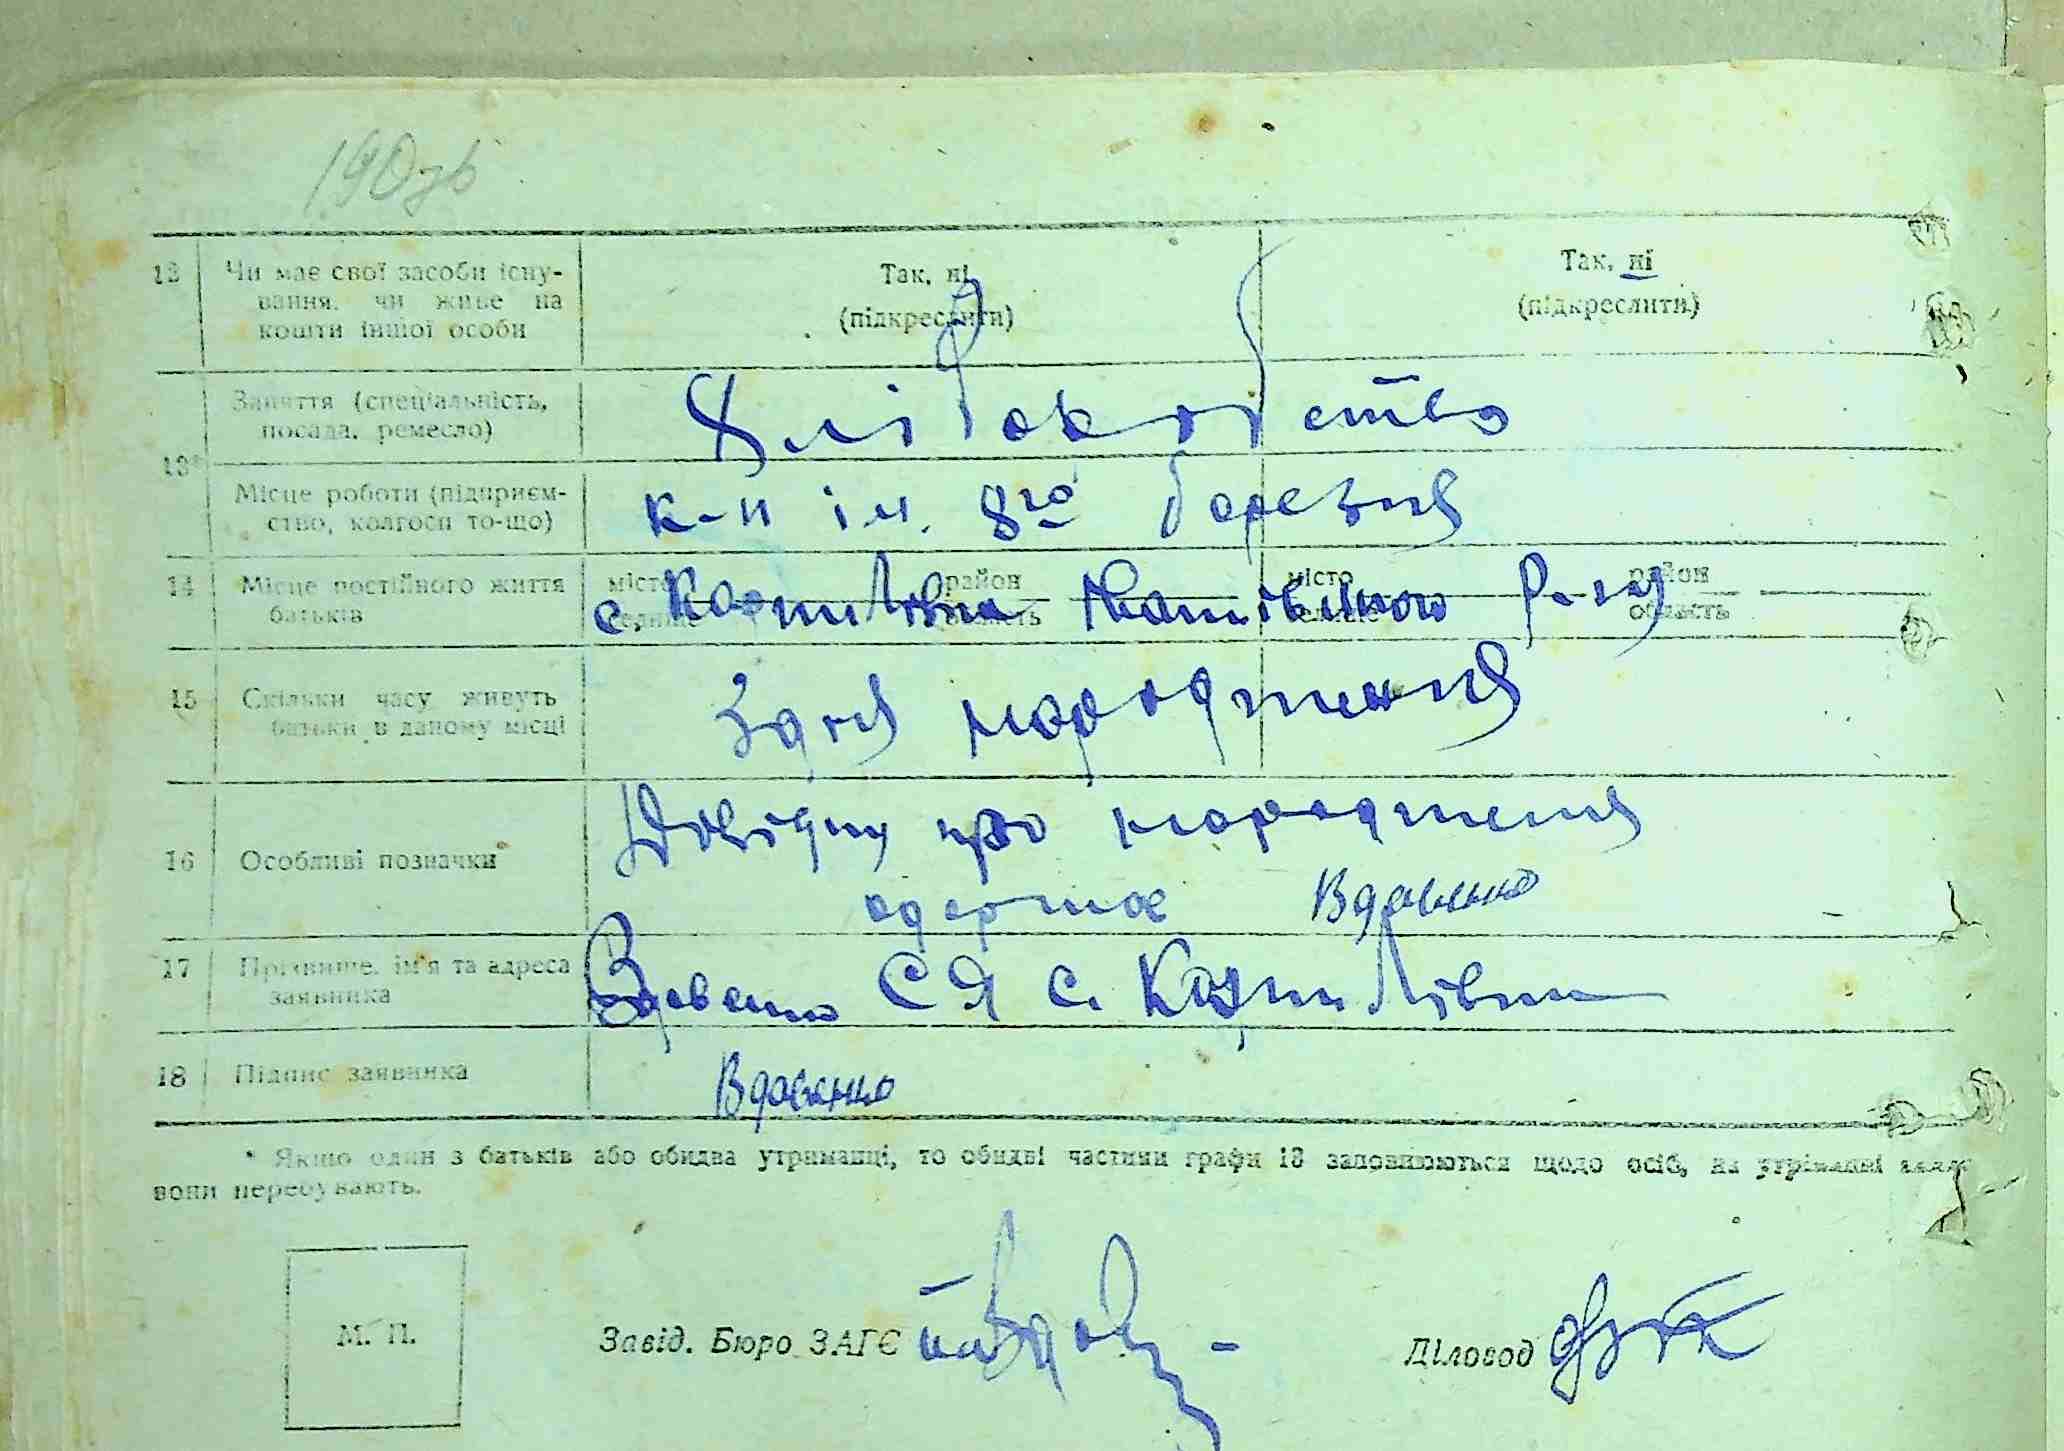 190зв
12 Чи має свої засоби існу-
вання, чи живе на
кошти іншої особи
Так, ні
(підкреслити)
Так, ні
(підкреслити)
13*
Заняття (спеціальність,
посада, ремесло)
Хліборобство
Місце роботи (підприєм-
ство, колгосп то-що)
к-п ім. 8го березня
14 Місце постійного життя
батьків
місто район місто район
селище область селище область
с. район
15 Скільки часу живуть
батьки в даному місці
Здня народження
16 Особливі позначки
Довідку про народження
одержав Вдовенко
17 Прізвище, ім'я та адреса
заявника
Вдовенко С Я с.
18 Підпис заявника
Вдовенко
* Якщо один з батьків або обидва утриманці, то обидві частини графи 13 заповнюються щодо осіб, на утриманні яких
вони перебувають.
М. П.
Завід. Бюро ЗАГС
Діловод